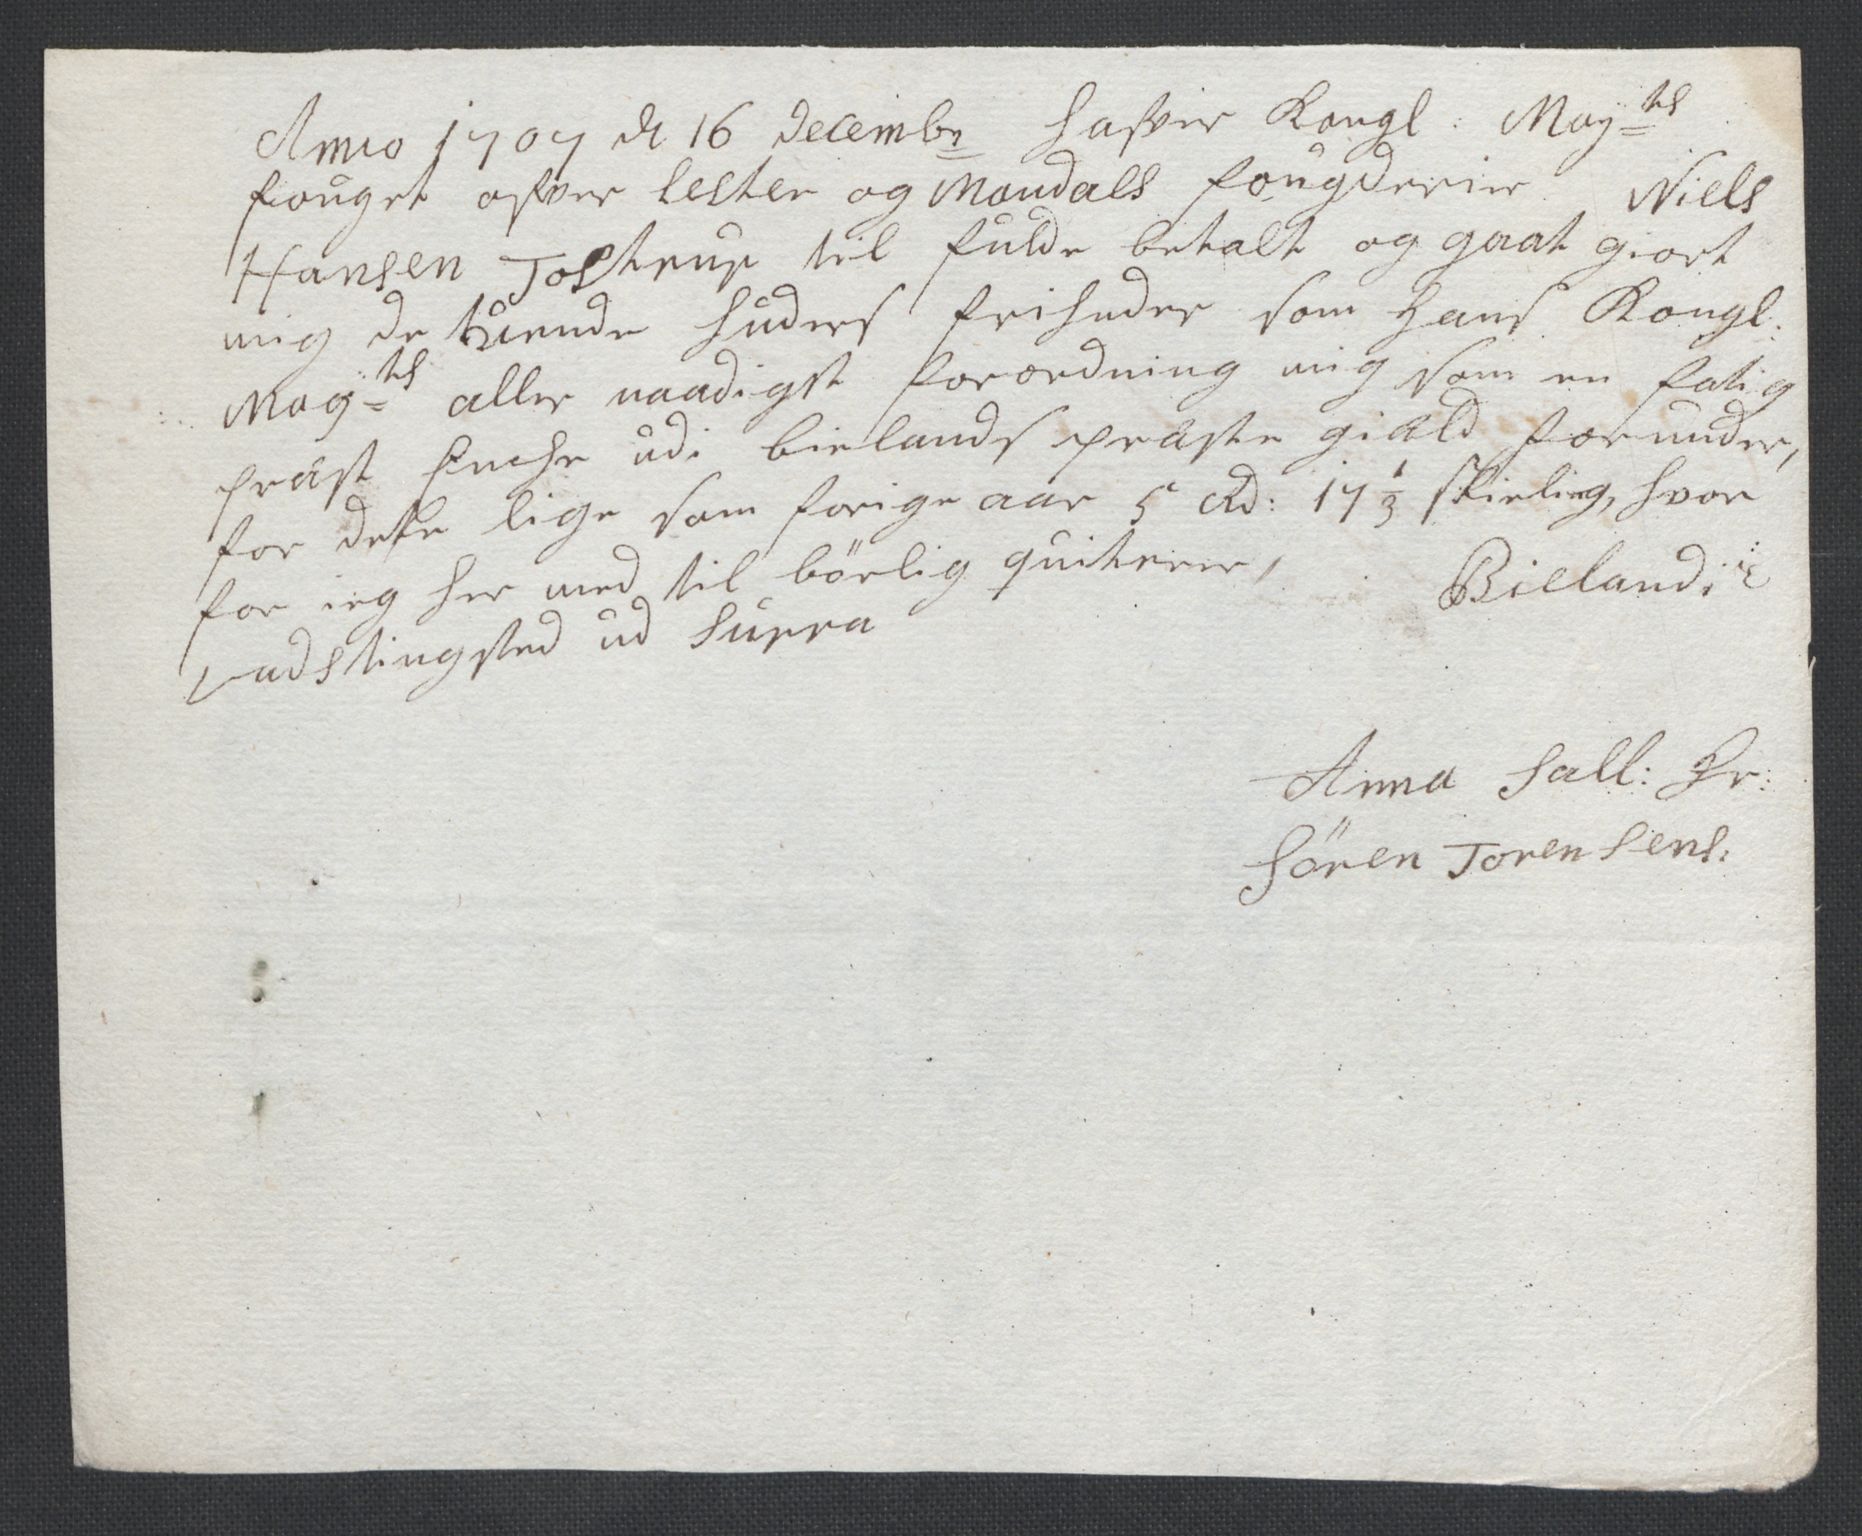 Anno 1707 d 16 decembr hafver Kongl: May:ts
fouget ofver Lester og Mandals fougderier Niels
Hansen Tostrup til fulde betalt og gaat giort
mig de tuende huders frihuder som Hans Kongl:
May:ts aller naadigst forordning mig som en fatig
præst Enche udi bielands præste gield forunder,
for dette lige som forige aar 5 Rd: 17 1/3 skieling, hvor
for ieg her med til børlig quiterer, Bielands
vadstingsted ud supra
Anna Sall: Hr:
Sören Torensens: